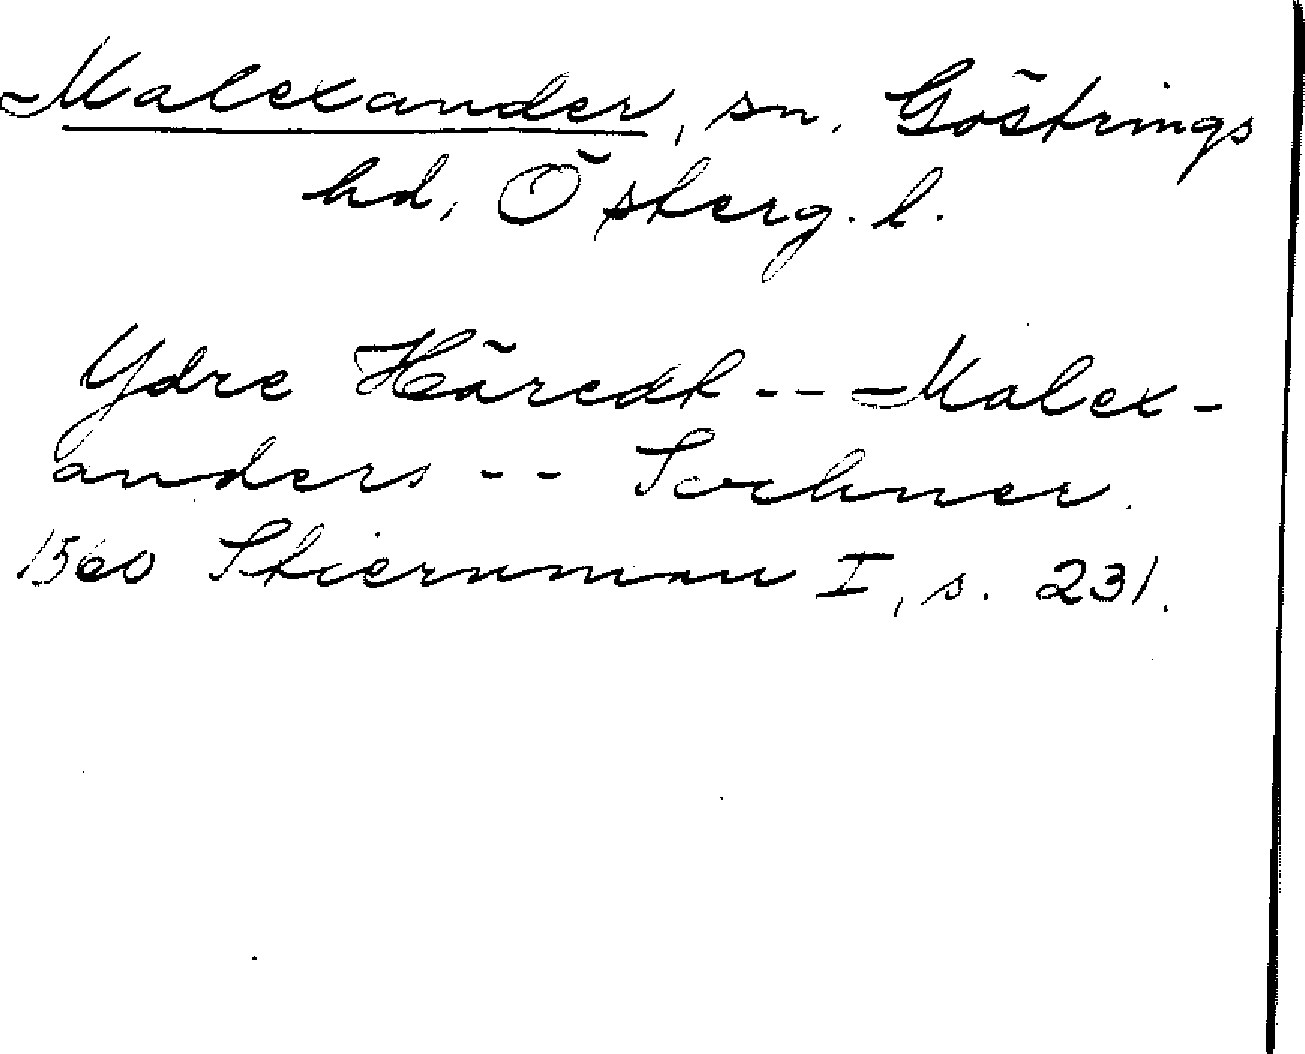 Malexander, sn. Göstrings
hd, Österg. l.
Ydre Häredt -- Malex-
anders -- Sochner.
1560 Stiernman I, s. 231.